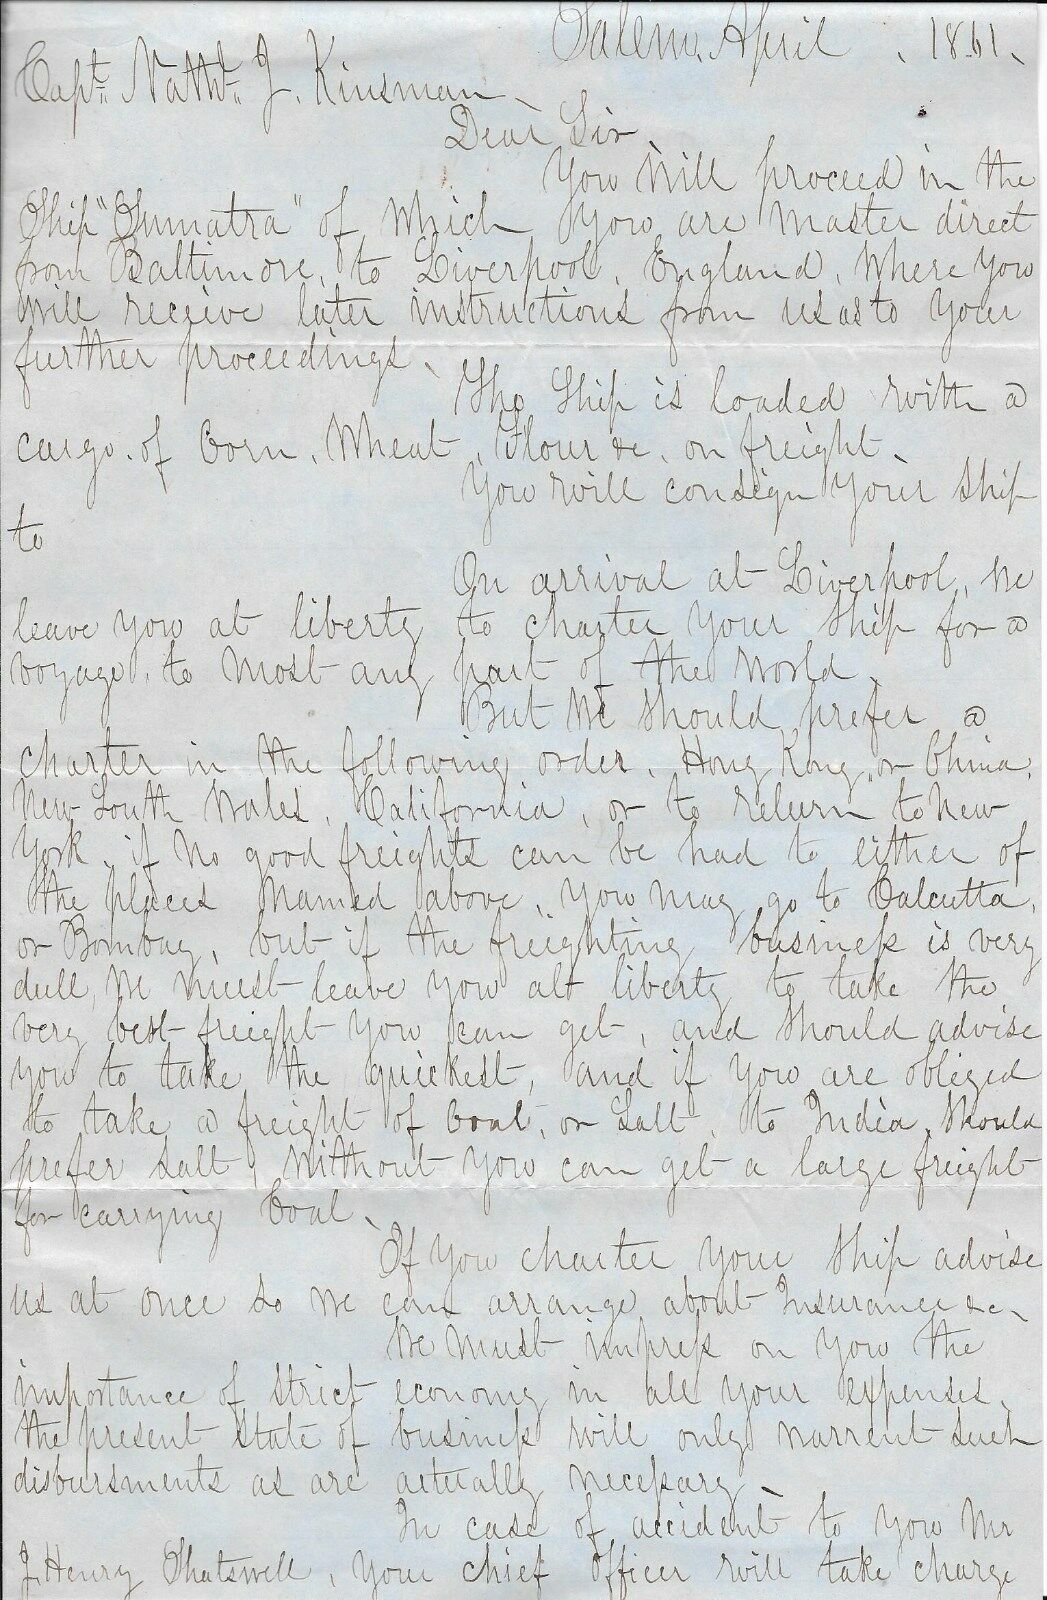 Salem, April . 1861.
Capt. Nathl. J. Kinsman.
Dear Sir
You will proceed in the
Ship "Sumatra" of which you are master direct
from Baltimore, to Liverpool, England, where you
will receive later instructions from us as to your
further proceedings.
The Ship is loaded with a
cargo. of Corn, Wheat, Flour &c, on freight.
You will consign your ship
to
On arrival at Liverpool, we
leave you at liberty to charter your ship for a
voyage, to most any part of the world.
But we should prefer a
charter in the following order, Hong Kong, or China,
New South Wales, California, or to return to New
York, if no good freights can be had to either of
the places named above, you may go to Calcutta,
or Bombay, but if the freighting business is very
dull, we must leave you alt liberty to take the
very best freight you can get, and should advise
you to take the quickest, and if you are obliged
to take a freight of Coal, or Salt, to India, should
prefer salt, without you can get a large freight
for carrying Coal.
If you charter your ship advise
us at once so we can arrange about Insurance &c.
We must impress on you the
importance of strict economy in all your expenses,
the present state of business will only warrent such
disbursments as are actually necessary.
In case of accident to you Mr
J. Henry Shatswell, your chief officer will take charge